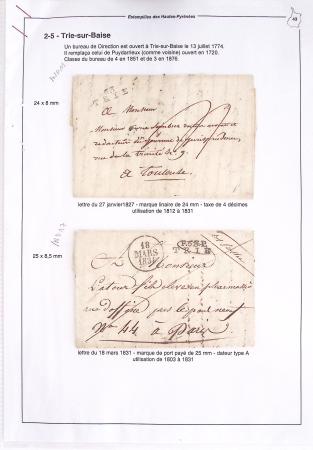 Estampilles des Hautes-Pyrénées
43
2-5 - Trie-sur-Baïse
Un bureau de Direction est ouvert à Trie-sur-Baïse le 13 juillet 1774.
Il remplaça celui de Puydarrieux (comme voisine) ouvert en 1720.
Classe du bureau de 4 en 1851 et de 3 en 1876.
24 x 8 mm
TRIE
A Monsieur
Monsieur
rédacteur du journal de jurisprudence,
rue de la trinité n° 9.
à Toulouse.
lettre du 27 janvier1827 - marque linaire de 24 mm - taxe de 4 décimes
utilisation de 1812 à 1831
25 x 8,5 mm
18
MARS
1831
P.64.P.
TRIE
A Monsieur
Latour fils élève en pharmacie
rue dauphine près le pont neuf
N° 44 à Paris
lettre du 18 mars 1831 - marque de port payé de 25 mm - dateur type A
utilisation de 1803 à 1831